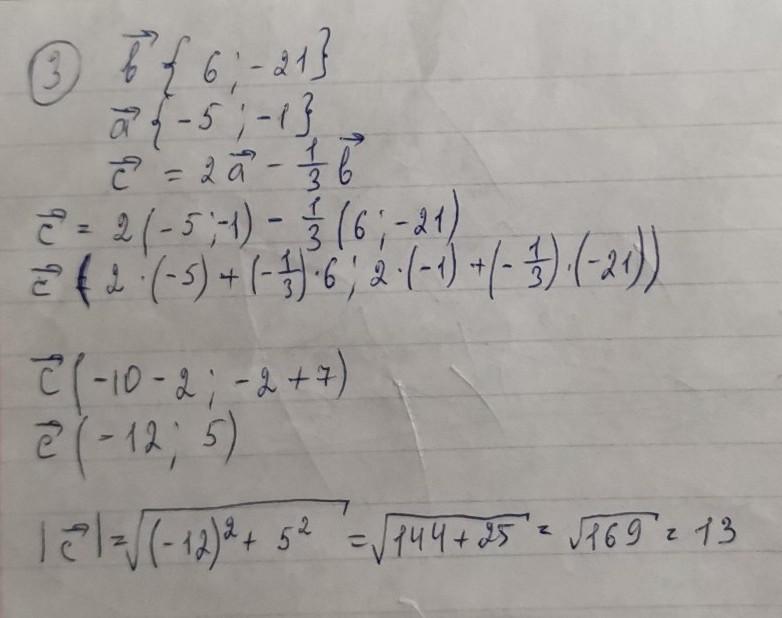 ③ b⃗ { 6 ; -21}
a⃗ { -5 ; -1}
c⃗ = 2a⃗ - 1/3 b⃗
c⃗ = 2(-5 ; -1) - 1/3 (6 ; -21)
c⃗ ( 2 · (-5) + (-1/3) · 6 ; 2 · (-1) + (-1/3) · (-21))
c⃗ (-10 - 2 ; -2 + 7)
c⃗ (-12 ; 5)
|c⃗| = √((-12)² + 5²) = √(144 + 25) = √169 = 13